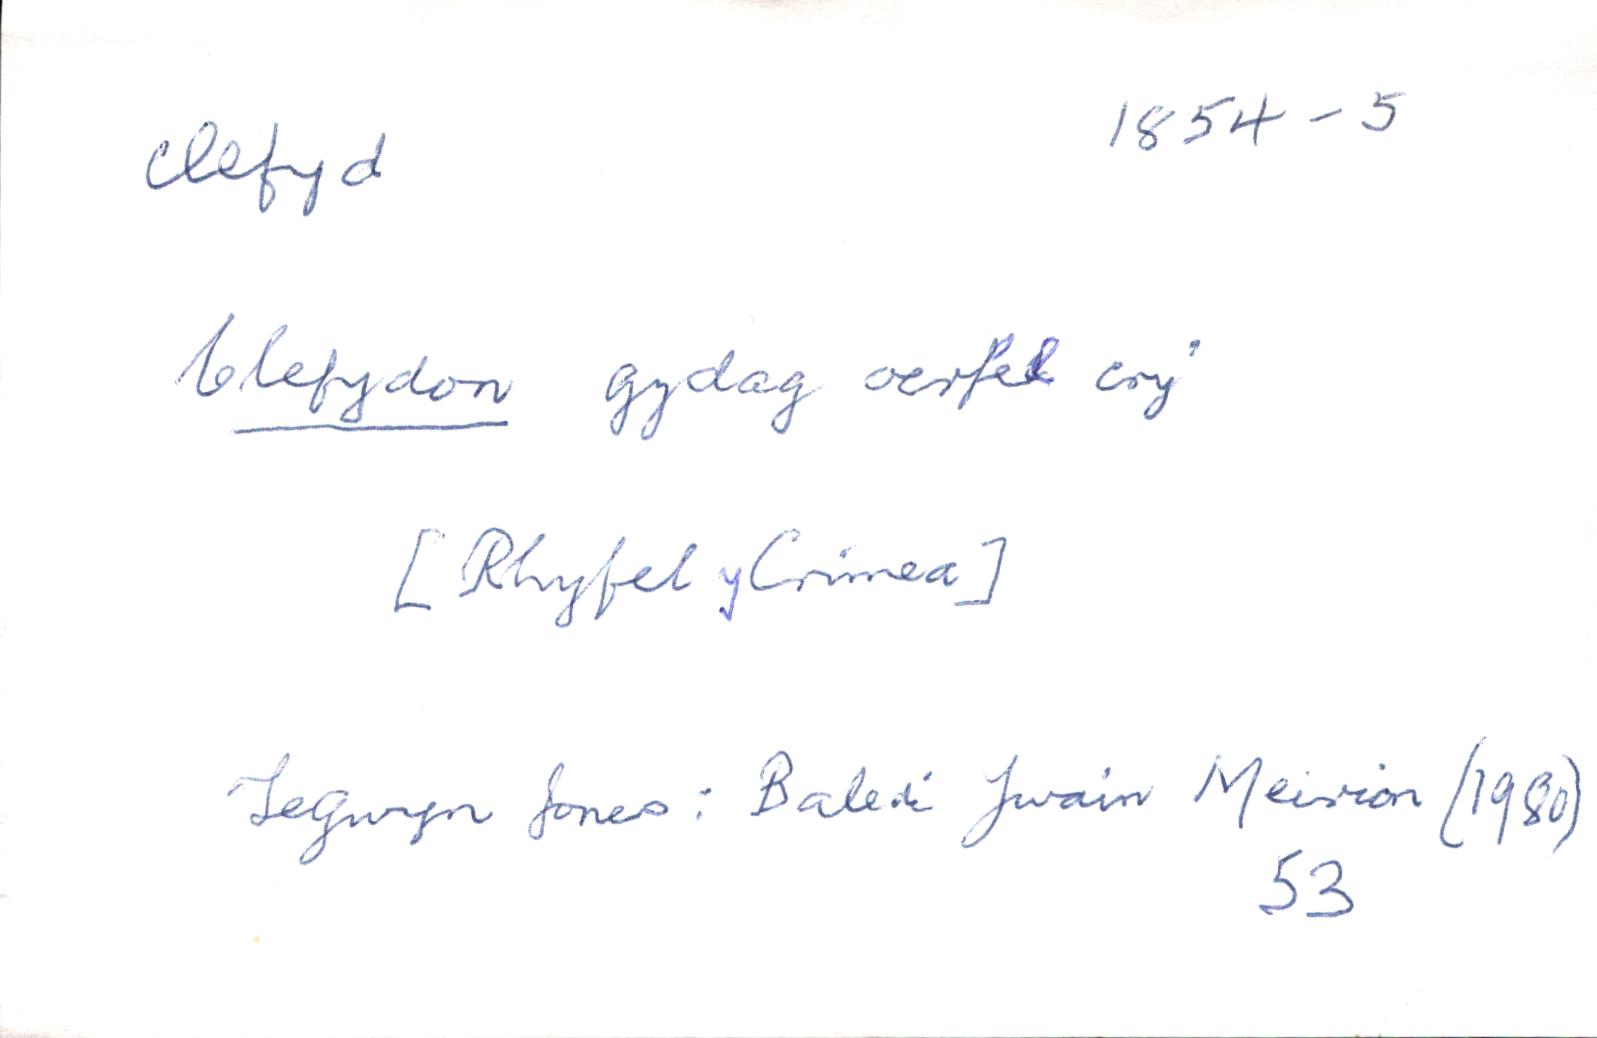 clefyd
1854-5
Clefydon gydag oerfel cry'
[Rhyfel y Crimea]
Tegwyn Jones: Baledi Ywain Meirion (1980)
53